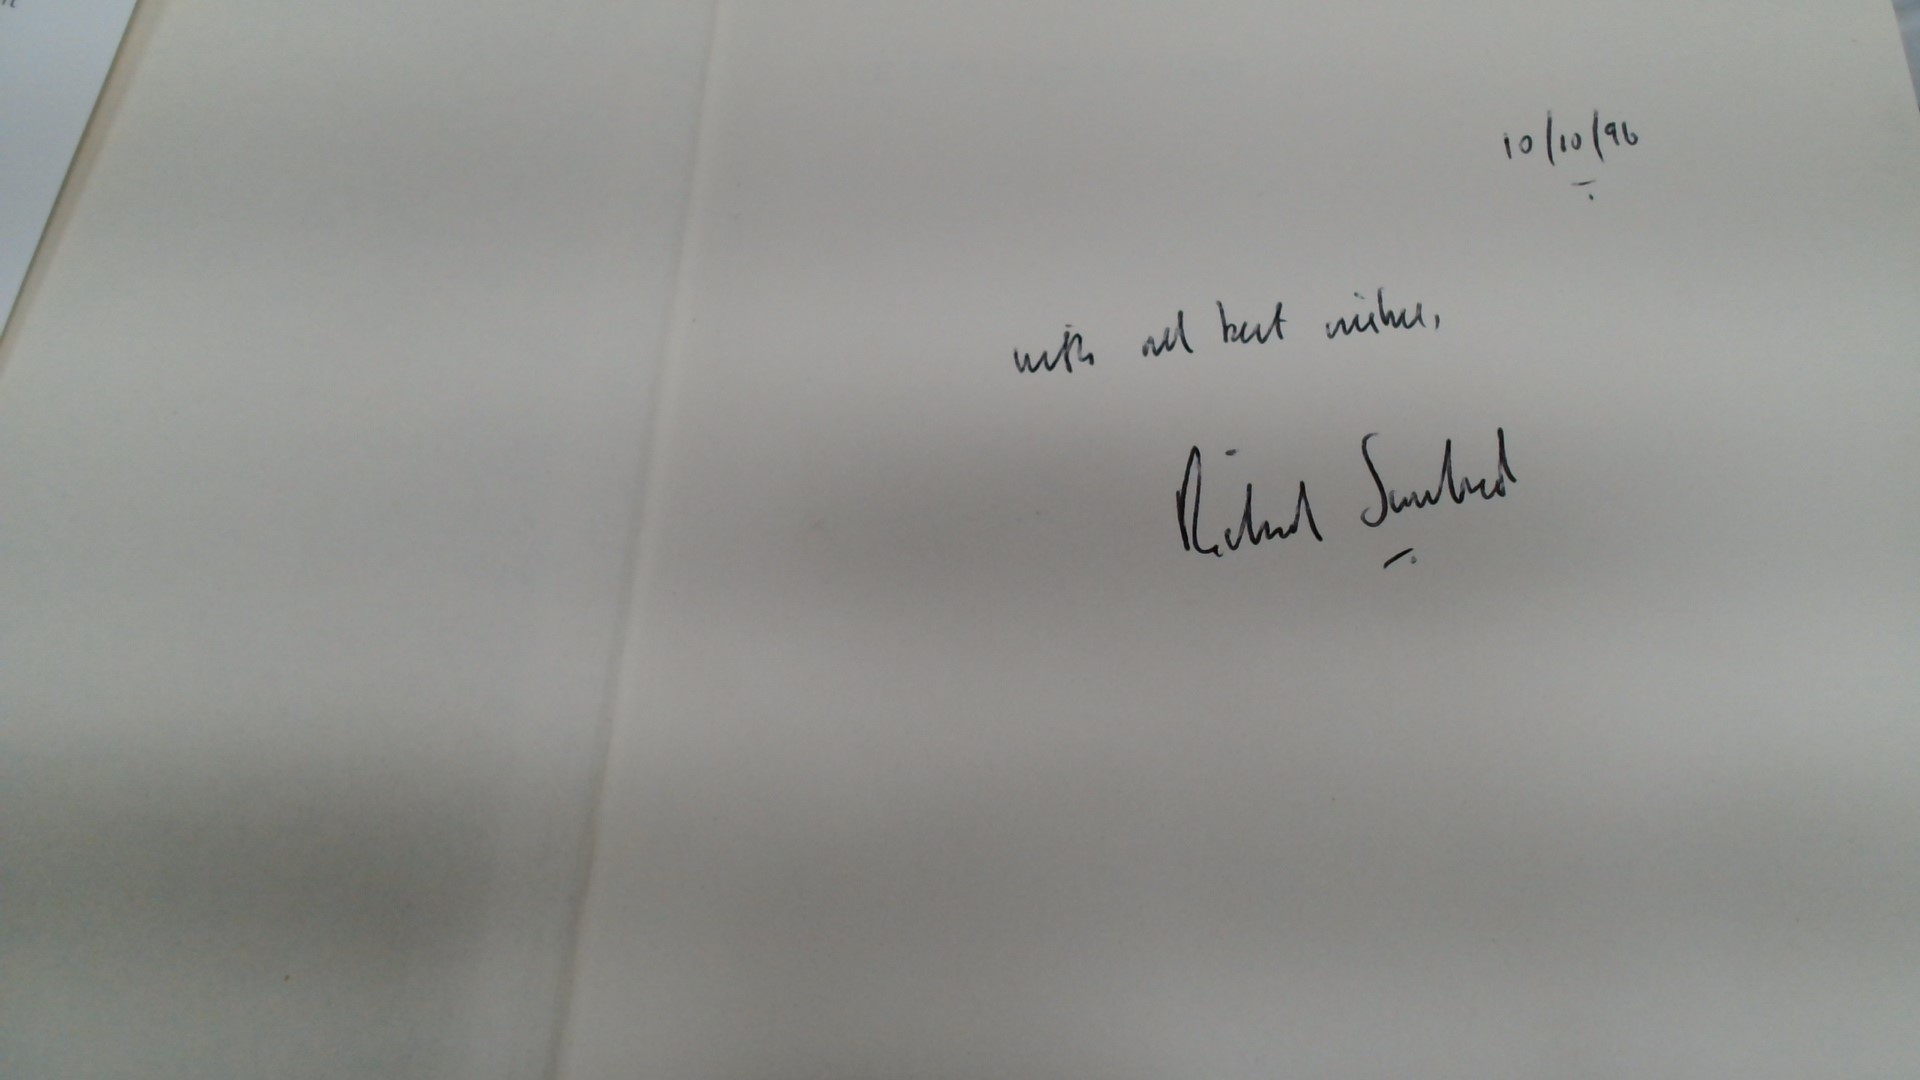 10/10/96
with all best wishes,
Richard